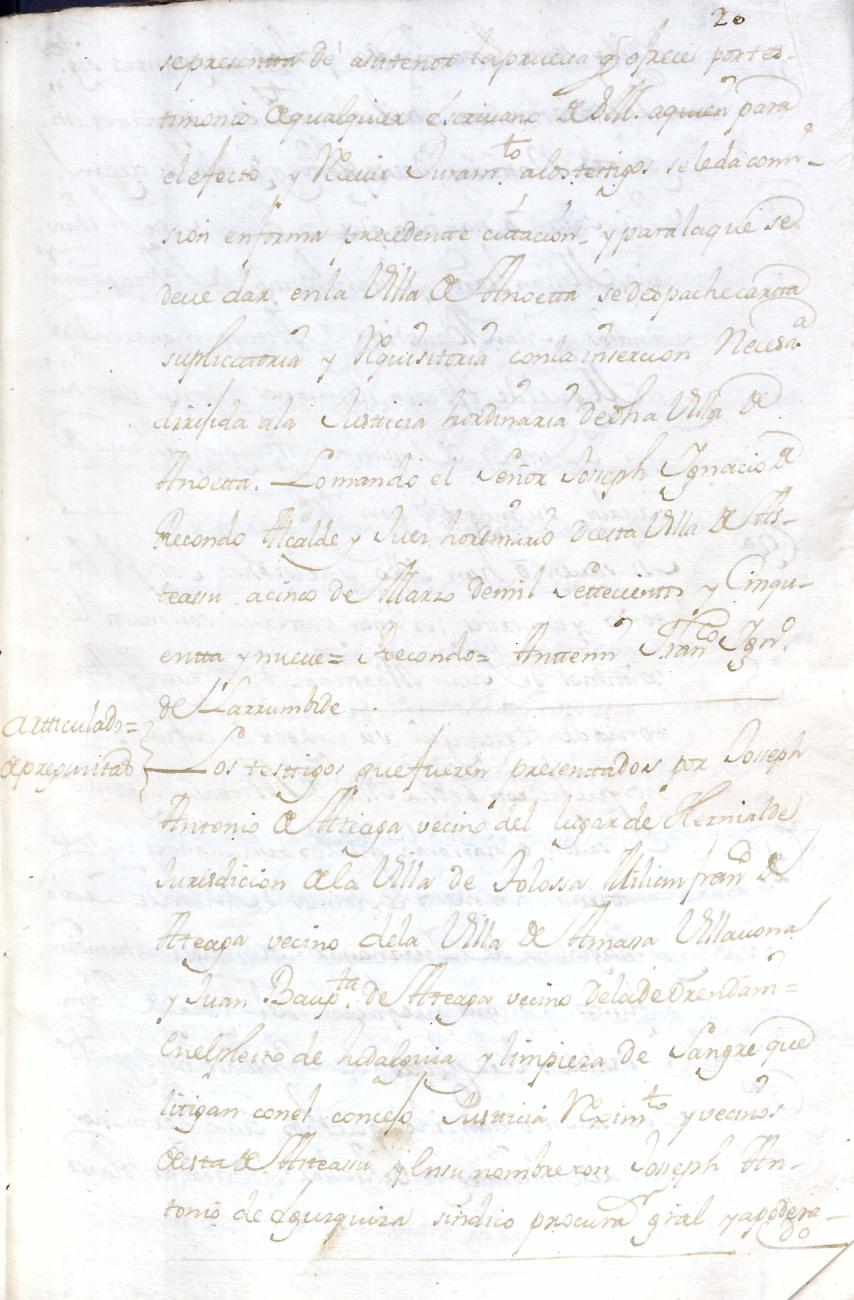 20
se presentta dé a su tenor la prueva q̃ ofrece por tes-
timonio de qualquier escrivano de S.M. a quien para
el efecto y Recivir Juram.to a los testigos se le da comi-
sion en forma precedente cittacion, y para la que se
deve dar en la Villa de Anoetta se despache cartta
suplicattoria y Requisitoria con la insercion Necesa.a
dirijida a la Justticia hordinaria de dha Villa de
Anoetta. Lo mando el Señor Joseph Ignacio de
Recondo Alcalde y Juez hordinario de esta Villa de As-
teasu a cinco de Marzo de mil Settecientos y Cinqu-
entta y nueve= Recondo= Anttemi Fran.co Ign.o
de Larrumbide
Artticulado=
de preguntas
Los testtigos que fueren presenttados por Joseph
Antonio de Atteaga vecino del lugar de Hernialde
Jurisdicion de la Villa de Tolossa Milian fran.co de
Atteaga vecino de la Villa de Amasa Villavona
y Juan Baup.ta de Atteaga vecino de la de Erendain=
En el pleito de hidalguia y limpieza de Sangre que
litigan con el concejo Justticia Reximt.o y vecinos
de esta de Asteasu y en su nombre con Joseph An-
tonio de Eguzquiza sindico procura.r gral y apodera-
do